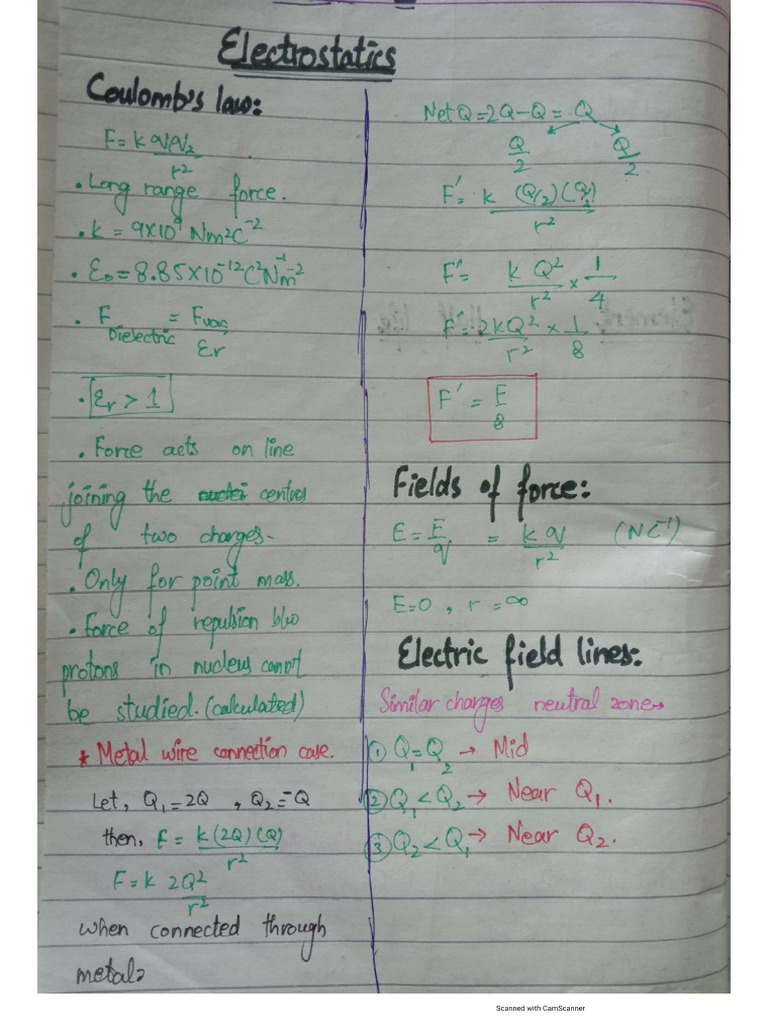 Electrostatics
Coulomb's law:
F = k q1q2/r²
• Long range force.
• k = 9×10⁹ Nm²C⁻²
• ε₀ = 8.85×10⁻¹² C²N⁻¹m⁻²
• F Dielectric = Fvac/εr
• εr > 1
• Force acts on line
joining the centres
of two charges-
• Only for point mass.
• Force of repulsion b/w
protons in nucleus cann't
be studied. (calculated)
* Metal wire connection case.
Let, Q₁ = 2Q , Q₂ = -Q
then, F = k(2Q)(Q)/r²
F = k 2Q²/r²
when connected through
metal
Net Q = 2Q - Q = Q
Q/2 Q/2
F' = k (Q/2)(Q/2)/r²
F' = k Q²/r² × 1/4
F' = 2kQ²/r² × 1/8
F' = F/8
Fields of force:
E = F/q = kq/r² (NC⁻¹)
E=0 , r = ∞
Electric field lines:
Similar charges neutral zone→
① Q₁ = Q₂ → Mid
② Q₁ < Q₂ → Near Q₁.
③ Q₂ < Q₁ → Near Q₂.
Scanned with CamScanner